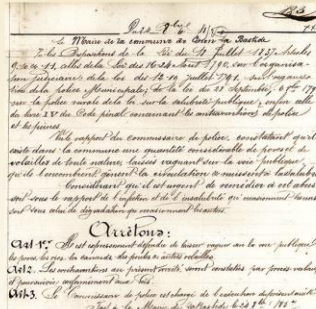 Le Maire de la commune de Cenon la Bastide
Vu les dispositions de la Loi du 18 Juillet 1837. articles
9, 10 et 11, celles de la Loi des 16-24 Août 1790, sur l'organisa-
tion judiciaire, de la loi des 19-22 Juillet 1791, sur
de la police Municipale; de la loi du 28 Septembre, 6 8bre 179
sur la police rurale de la loi sur la salubrité publique, enfin celle
du livre IV du Code pénal concernant les contraventions de police
et les peines
Vu le rapport du commissaire de police, constatant qu'il
existe dans la commune une quantité considérable de porcs et de
volailles de toute nature, laissés vaguant sur la voie publique
qui l'encombrent, gênent la circulation et nuisent à la salubrité
Considérant qu'il est urgent de remédier à cet abus
soit sous le rapport de l'infection et de l'insalubrité qu'occasionnent
soit sous celui des dégradations qu'occasionnent
Arrêtons:
Art 1er. Il est expressément défendu de laisser vaguer sur la voie publique
les porcs, les oies, les canards, les poules et autres volailles.
Art 2. Les contraventions au présent arrêté, seront constatées par procès verbaux
et poursuivies conformément aux lois.
Art 3. Le Commissaire de police est chargé de l'exécution du présent arrêté
Fait à la Mairie de